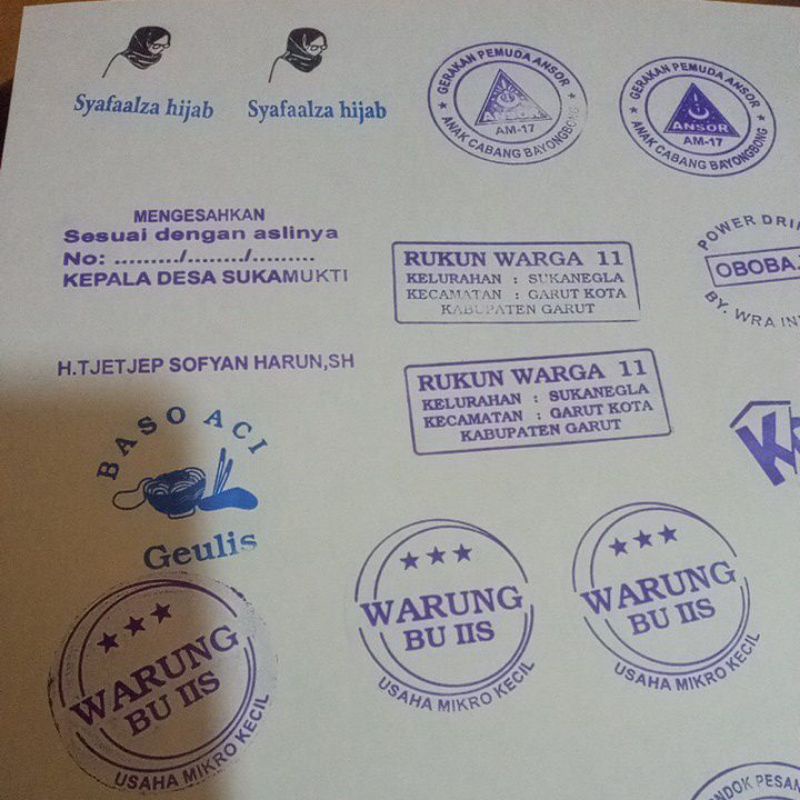 Syafaalza hijab
Syafaalza hijab
★ GERAKAN PEMUDA ANSOR ★
AM-17
ANAK CABANG BAYONGBONG
★ GERAKAN PEMUDA ANSOR ★
ANSOR
AM-17
ANAK CABANG BAYONGBONG
MENGESAHKAN
Sesuai dengan aslinya
No: ........../......../.........
KEPALA DESA SUKAMUKTI
H.TJETJEP SOFYAN HARUN,SH
RUKUN WARGA 11
KELURAHAN : SUKANEGLA
KECAMATAN : GARUT KOTA
KABUPATEN GARUT
RUKUN WARGA 11
KELURAHAN : SUKANEGLA
KECAMATAN : GARUT KOTA
KABUPATEN GARUT
POWER
BY. WRA
BASO ACI
Geulis
WARUNG
BU IIS
USAHA MIKRO KECIL
WARUNG
BU IIS
USAHA MIKRO KECIL
WARUNG
BU IIS
USAHA MIKRO KECIL